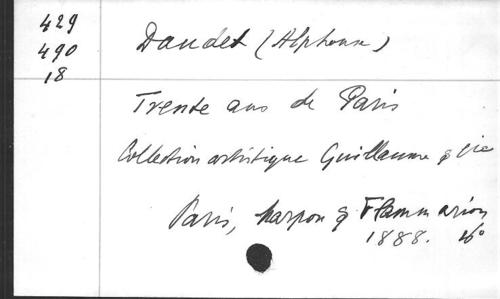 429
490
18
Daudet (Alphonse)
Trente ans de Paris
Collection artistique Guillaume & Cie
Paris, Marpon & Flammarion
1888. 16°